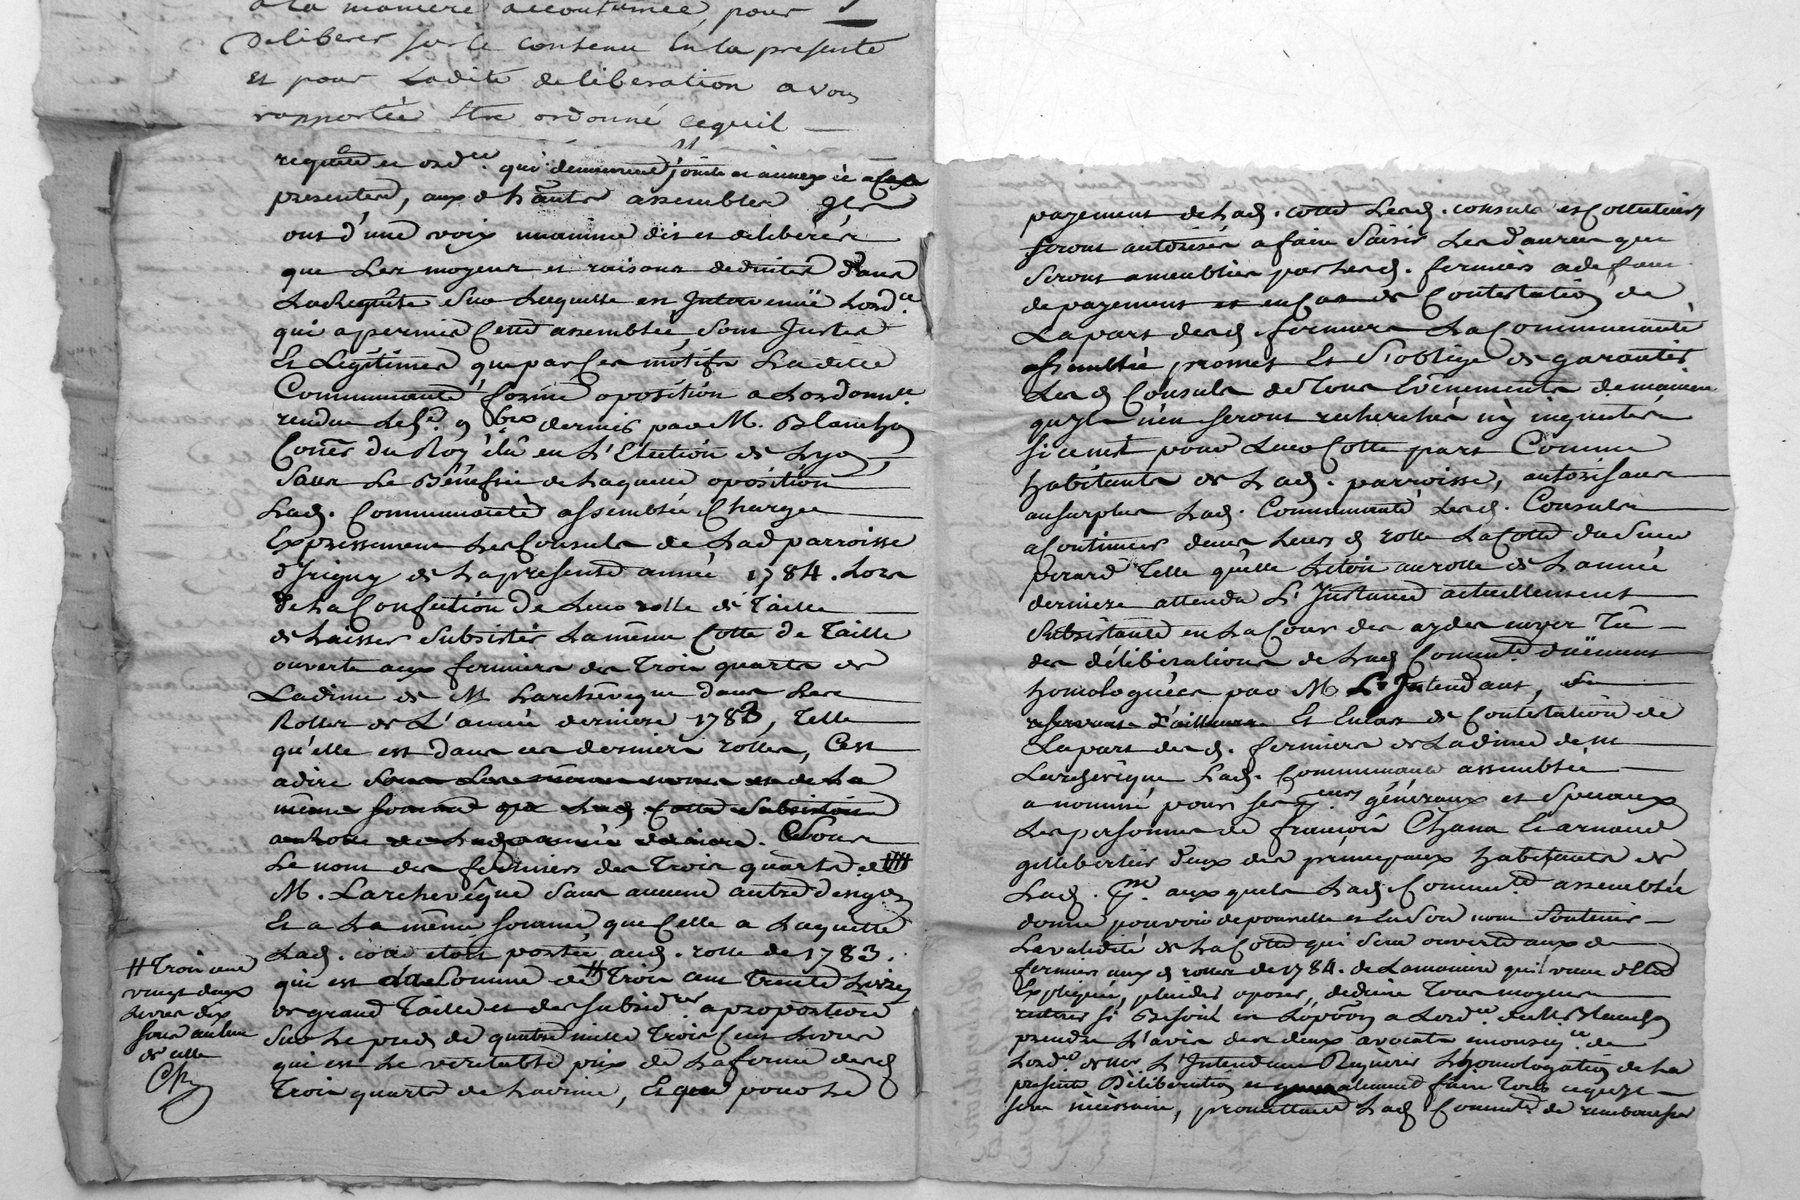 a la maniere accoutumée, pour
deliberer sur le contenu en la presente
et pour ladite deliberation a vous
rapportée Etre ordonné cequil
requete et ord.ce qui demeurent jointe et annexée a
presentes, aux d habitants assembles
ont d'une voix unanime dit et deliberés
que Les moyens et raisons deduites dans
La Requête Sur Laquelle est Intervenüe Lord.ce
qui a permis Cette assemblée, Sont Justes
Et Légitimes, que par Ces motifs Ladite
Communauté forme oposition a Lordonn.ce
rendue Le 9 bre dernier par M. Blanchon
Coner du Roy élû en L'Election de Lyon
Sans Le Bénéfice de Laquelle oposition
Lad. Communauté assemblée Charge
Expressement Les Consuls de Lad parroisse
d'Irigny de La presente année 1784. Lors
de La Confection de Leur rolle de Taille
de Laisser Subsister La même Cotte de Taille
ouverte aux fermiers des Trois quarts de
La dime de M Larchevêque dans Les
Rolles de L'année derniere 1783, Telle
qu'elle est dans ces derniers rolles, C'est
adire Sous Les mêmes noms et de La
même somme que Lad. Cotte Subsistoit
au rolle de Lad année derniere. Sous
Le nom des fermiers des Trois quarts de
M. Larchevêque Sans aucune autre designation
Et a La même somme que Celle a Laquelle
Lad. cotte etoit portée aud. rolle de 1783.
qui est de Somme de # Trois cent Trente Livres
de grand Taille et des Subsid.res a proportion
Sur Le pied de quatre mille Trois Cent Livres
qui est Le veritable prix de La ferme desd
Trois quarts de La dime, Et que pour Le
# Trois cent
vingt deux
Livres dix
sous au lieu
de celle
payement de Lad. cotte Lesd. consuls et Collecteurs
seront autorisés a faire Saisir Les danrées qui
Seront ameublies par Lesd. fermiers a defaut
de payement et en Cas de Contestation de
La part desd. fermiers La Communauté
assemblée, promet Et S'oblige de garantir
Les d Consuls de Tous Evênements de maniere
qu'ils n'en seront recherchés ny inquietés
si ce n'est pour Leur Cotte part Comme
habitants de Lad. parroisse, autorisant
au surplus Lad. Communauté Lesd. Consuls
a Continuer dans Leurs d rolle La Cotte du Sieur
Perard Telle qu'elle Etoit au rolle de L'année
derniere attendu L'Instance actuellement
Subsistante en La Cour des aydes
des délibérations de Lad Commu.té düement
homologuées par M L'Intendant,
d'ailleurs Et En cas de Contestation de
La part desd. fermiers de La dime de M
Larchevêque Lad. Communauté assemblée
a nommé pour ses p.eurs généraux et Speciaux
Les personnes de françois Chana Et arnaud
gillibertier d'eux des principaux habitants de
Lad. p.sse aux quels Lad. Commu.té assemblée
donne pouvoir de pour elle et En Son nom Soutenir
La validité de La Cotte qui Sera ouverte aux d
fermiers aux d rolles de 1784. de La maniere quil vient d'Etre
Expliqué, plaider oposer, deduire Tous moyens
reiterer si Besoin est Lopp.on a Lord.ce du M. Blanchon
prendre L'avis des deux avocats de
Lord.ce de Mr. L'Intendant Requerir L'homologation de La
presente Délibération et generalement faire Tout ce qui
sera nécessaire, promettant Lad Commu.té de rembourser